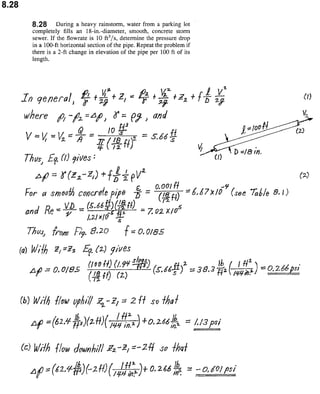 8.28
8.28 During a heavy rainstorm, water from a parking lot
completely fills an 18-in.-diameter, smooth, concrete storm
sewer. If the flowrate is 10 ft³/s, determine the pressure drop
in a 100-ft horizontal section of the pipe. Repeat the problem if
there is a 2-ft change in elevation of the pipe per 100 ft of its
length.
In general, p₁/γ + V₁²/2g + z₁ = p₂/γ + V₂²/2g + z₂ + f l/D V²/2g (1)
where p₁-p₂ = Δp, γ = ρg, and
V = V₁ = V₂ = Q/A = 10 ft³/s / (π/4 (18/12 ft)²) = 5.66 ft/s
V₂
l = 100ft
(2)
V₁
(1)
D = 18 in.
Thus, Eq. (1) gives:
Δp = γ(z₂-z₁) + f l/D ½ ρV² (2)
For a smooth concrete pipe ε/D = 0.001 ft / (18/12 ft) = 6.67×10⁻⁴ (see Table 8.1)
and Re = VD/ν = (5.66 ft/s)(18/12 ft) / 1.21×10⁻⁵ ft²/s = 7.02×10⁵
Thus, from Fig. 8.20 f = 0.0185
(a) With z₁ = z₂ Eq. (2) gives
Δp = 0.0185 (100 ft)(1.94 slugs/ft³) / (18/12 ft)(2) (5.66 ft/s)² = 38.3 lb/ft² (1 ft²/144 in.²) = 0.266 psi
(b) With flow uphill z₂-z₁ = 2 ft so that
Δp = (62.4 lb/ft³)(2ft)(1 ft²/144 in.²) + 0.266 lb/in.² = 1.13 psi
(c) With flow downhill z₂-z₁ = -2 ft so that
Δp = (62.4 lb/ft³)(-2ft)(1 ft²/144 in.²) + 0.266 lb/in.² = -0.601 psi